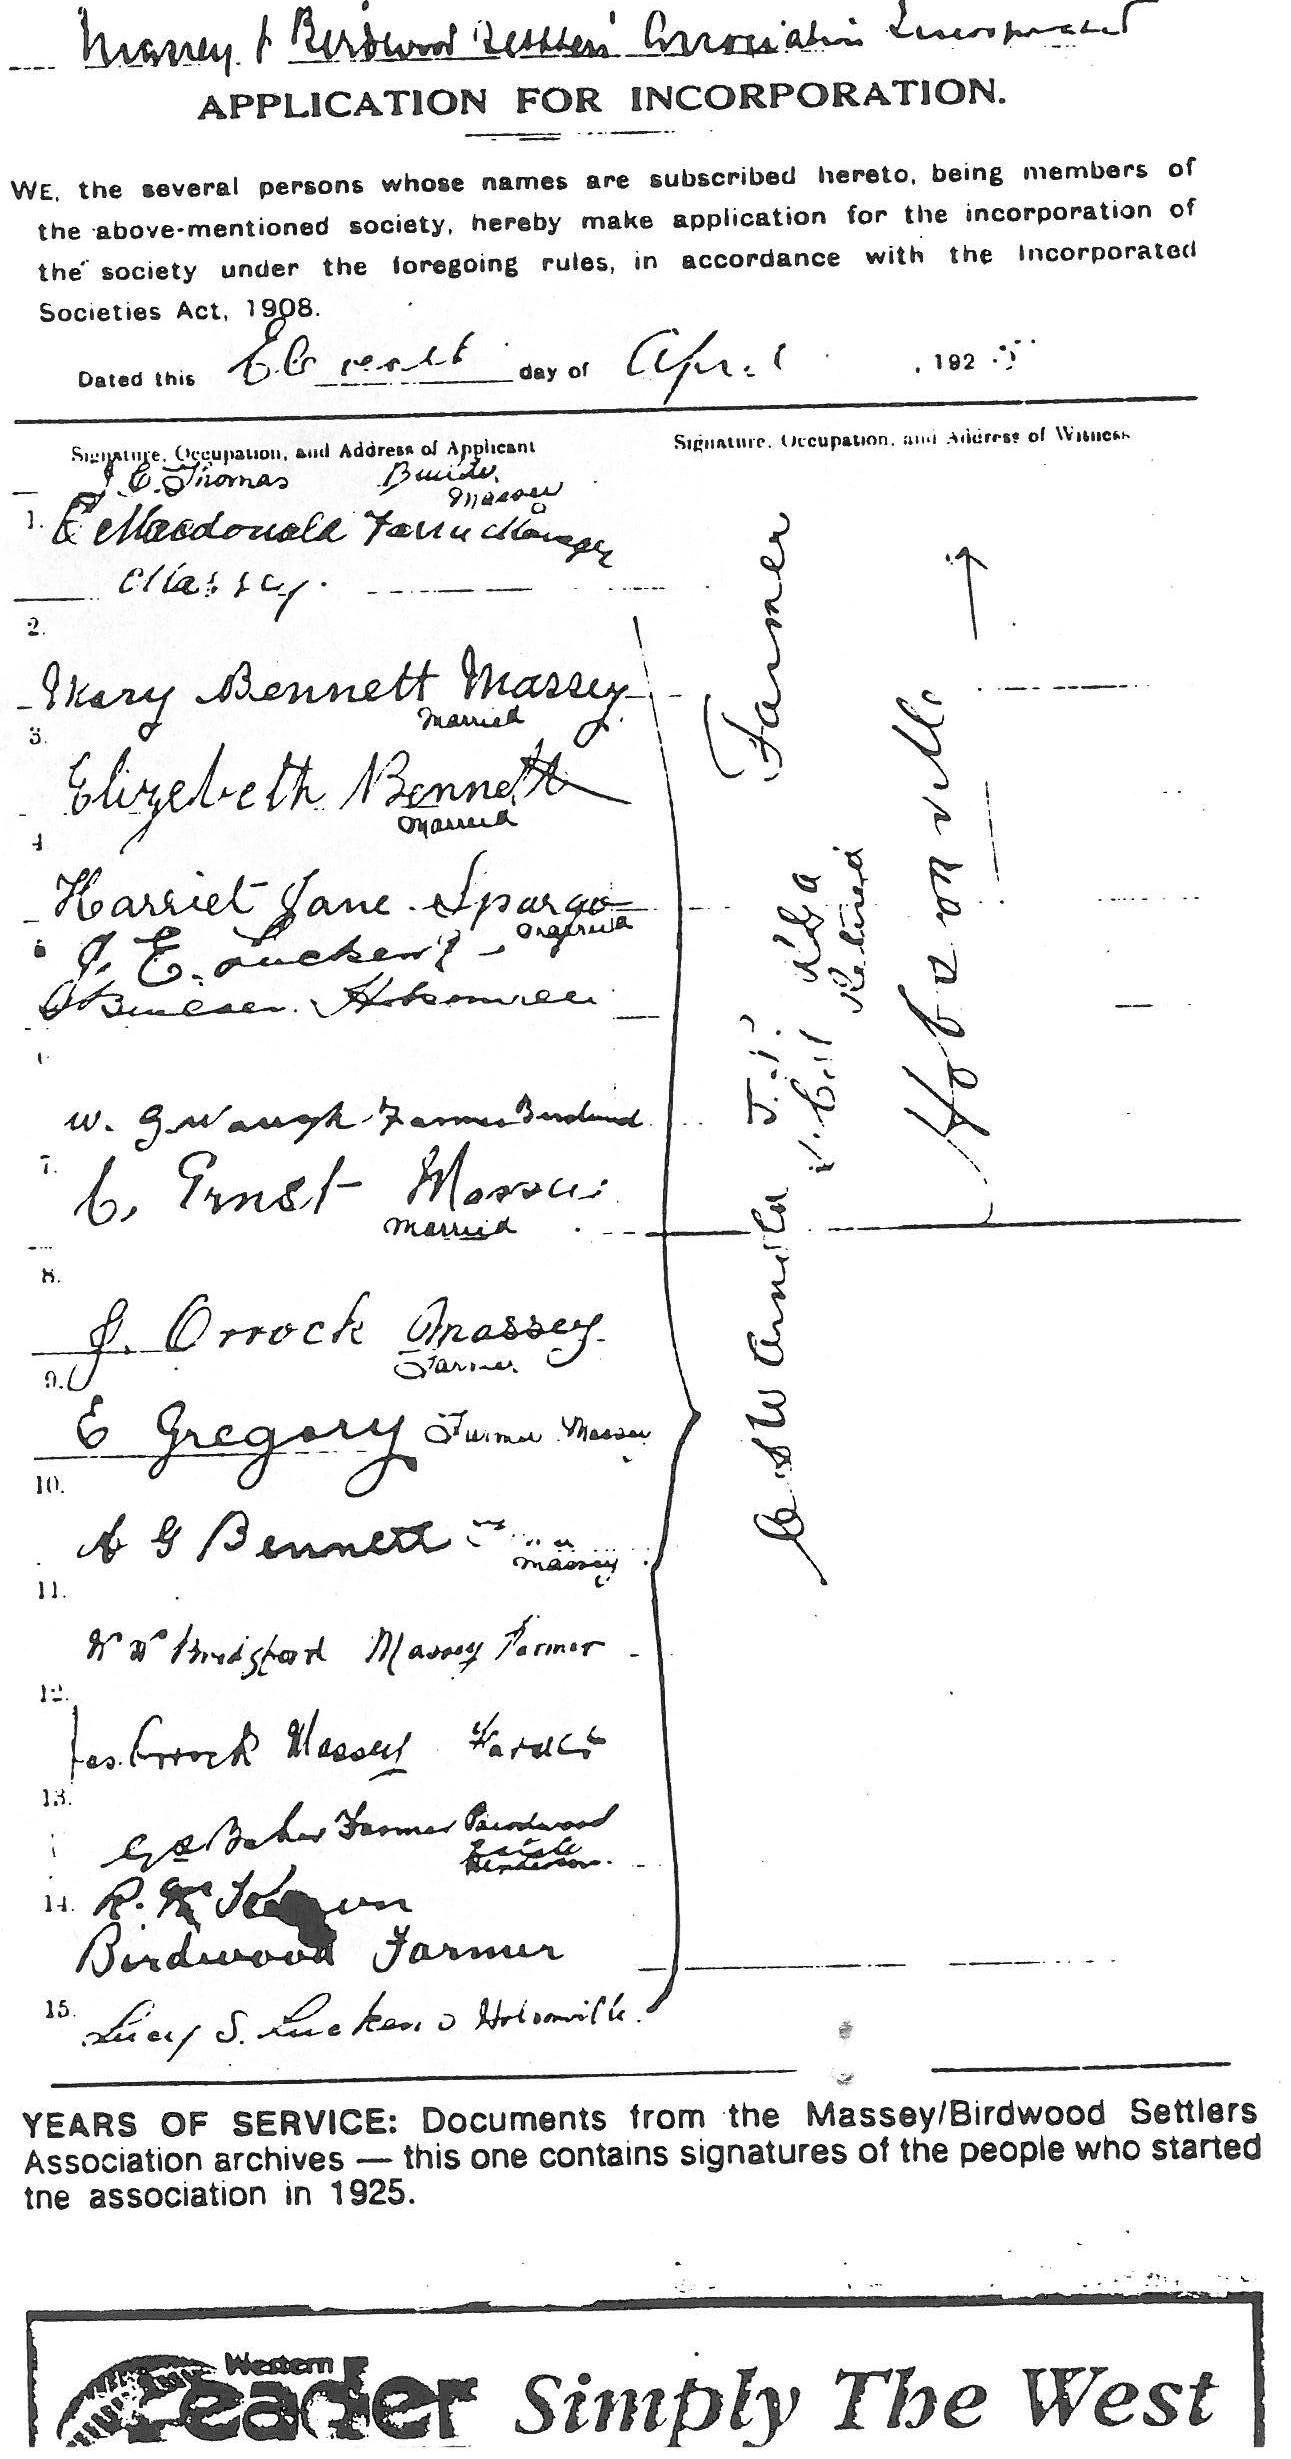 Massey & Birdwood Settlers' Association Incorporated
APPLICATION FOR INCORPORATION.
WE, the several persons whose names are subscribed hereto, being members of
the above-mentioned society, hereby make application for the incorporation of
the society under the foregoing rules, in accordance with the Incorporated
Societies Act, 1908.
Dated this day of April , 1925
Signature, Occupation, and Address of Applicant
Signature, Occupation, and Address of Witness
J. E. Thomas Builder
Massey
1. E Macdonald Farm Manager
Massey.
2.
Mary Bennett Massey
Married
3.
Elizebeth Bennett
Married
4
Harriet Jane Spargo
Married
5 J. E. Luckens
Hobsonville
6
W. G. Waugh Farmer Birdwood
7.
C. Ernst Massey
Married
8.
J. Orrock Massey
Farmer
9.
E Gregory Farmer Massey
10.
A G Bennett
Massey
11.
Bridgford Massey Farmer
12.
Jas. Orrock Massey Farmer
13.
Baker Farmer Birdwood
Estate
Henderson.
14. R.
Birdwood Farmer
15. Lucy S. Luckens Hobsonville.
Arnold J.P. Farmer
Lt. Col NZA
Retired
Hobsonville
YEARS OF SERVICE: Documents from the Massey/Birdwood Settlers
Association archives — this one contains signatures of the people who started
tne association in 1925.
Western
Leader Simply The West